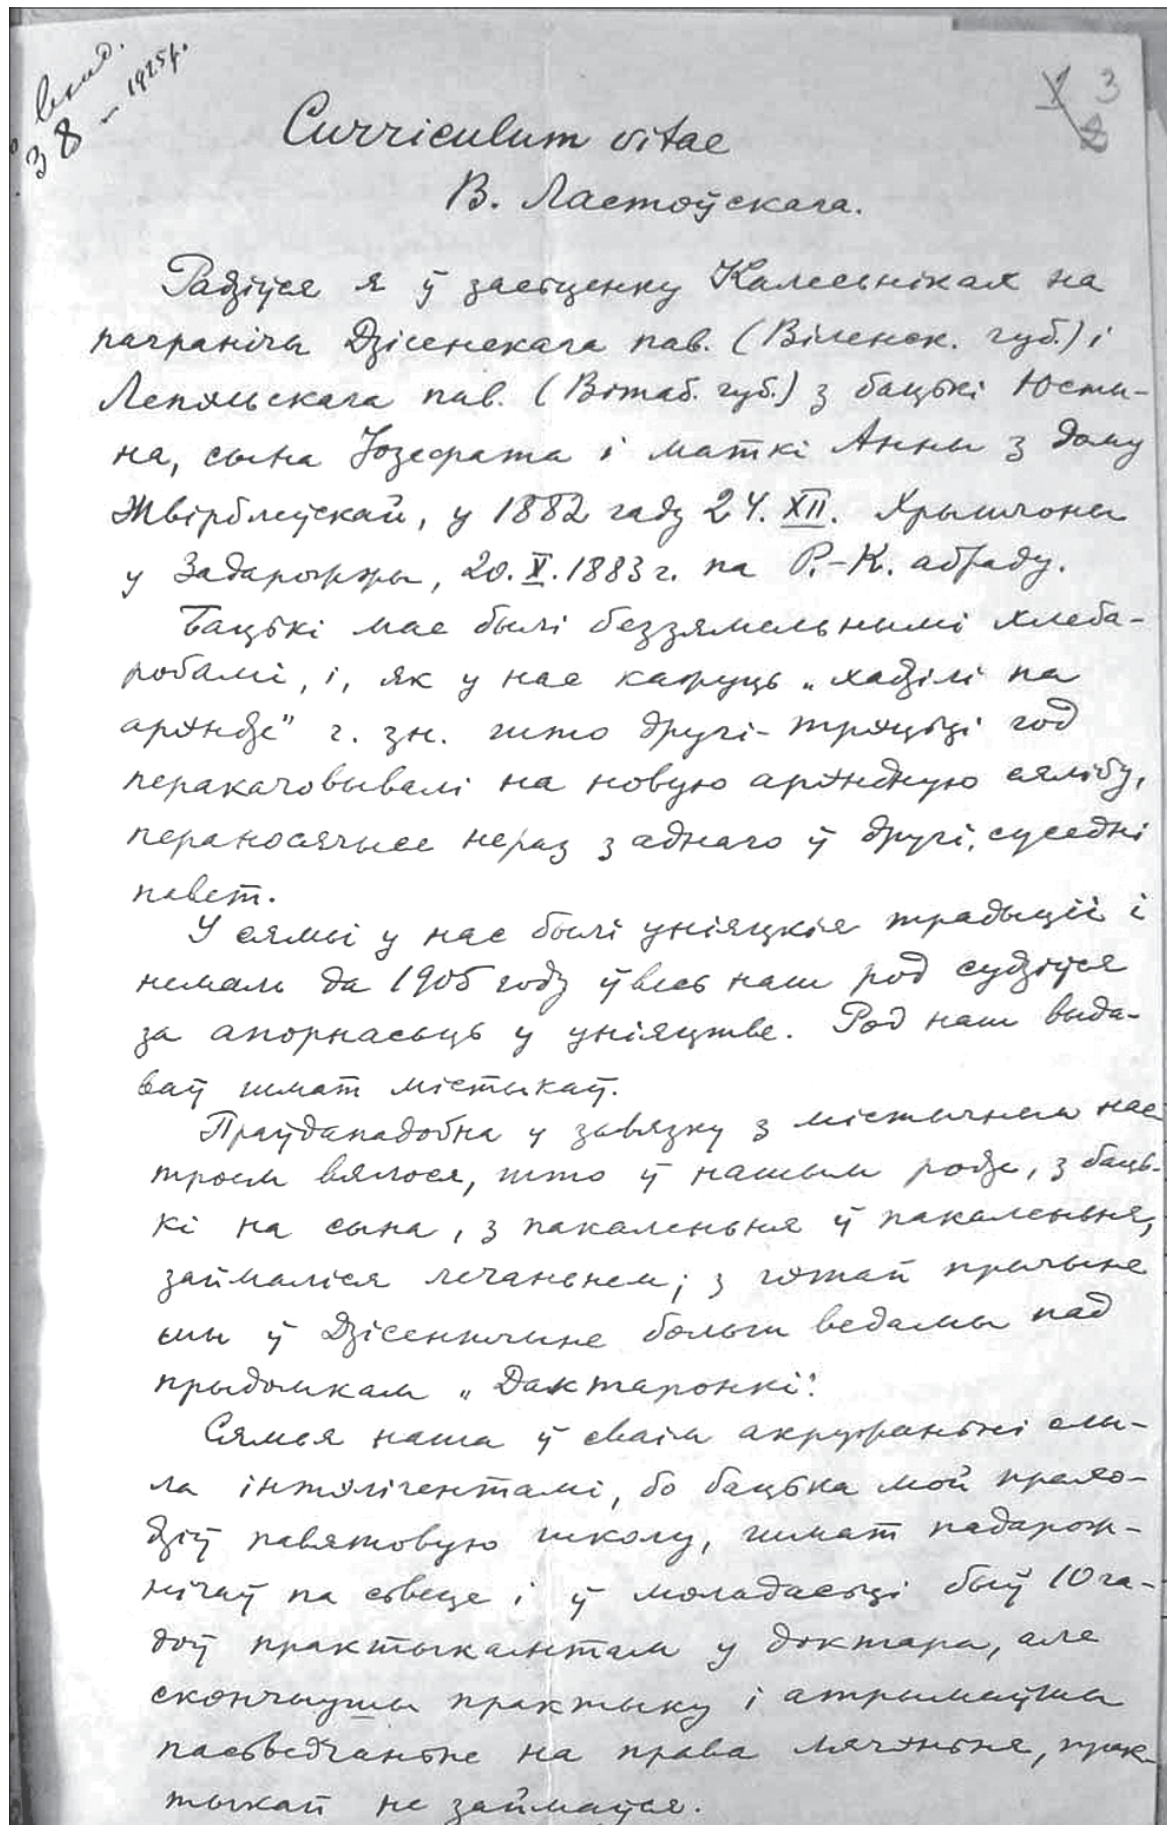 38 – 1925 г.
3
8
Curriculum vitae
В. Ластоўскага.
Радзіўся я ў засьценку Калесьніках на
пагранічы Дзісенскага пав. (Віленск. губ.) і
Лепэльскага пав. (Вітаб. губ.) з бацькі Юсты-
на, сына Іозефата і маткі Анны з дому
Жвірблеўскай, у 1882 гаду 24. XII. Хрышчоны
у Задарожжы, 20. X. 1883 г. па Р.-К. абраду.
Бацькі мае былі беззямельнымі хлеба-
робамі, і, як у нас кажуць „хадзілі па
арэндзе" г. зн. што другі-трэцьці год
перакачовывалі на новую арэндную сялібу,
пераносячысе нераз з аднаго ў другі, суседні
павет.
У сямьі у нас былі уніяцкія традыціі і
немаль да 1905 году ўвесь наш род судзіўся
за апорнасьць у уніяцтве. Род наш выда-
ваў шмат містыкаў.
Праўдападобна у зьвязку з містычным нас-
троем вялося, што ў нашым родзе, з баць-
кі на сына, з пакаленьня ў пакаленьня,
займаліся лечаньнем; з гэтай прычыне
мы ў Дзісеншчыне больш ведамы пад
прыдомкам „Дактаронкі".
Сямья наша ў сваім акружэньні слы-
ла інтэлігентамі, бо бацька мой прахо-
дзіў павятовую школу, шмат падарож-
нічаў па сьвеце і ў моладасьці быў 10 га-
доў практыкантам у доктара, але
скончыўшы практыку і атрымаўшы
пасьведчаньне на права лячэньня, прак-
тыкай не займаўся.